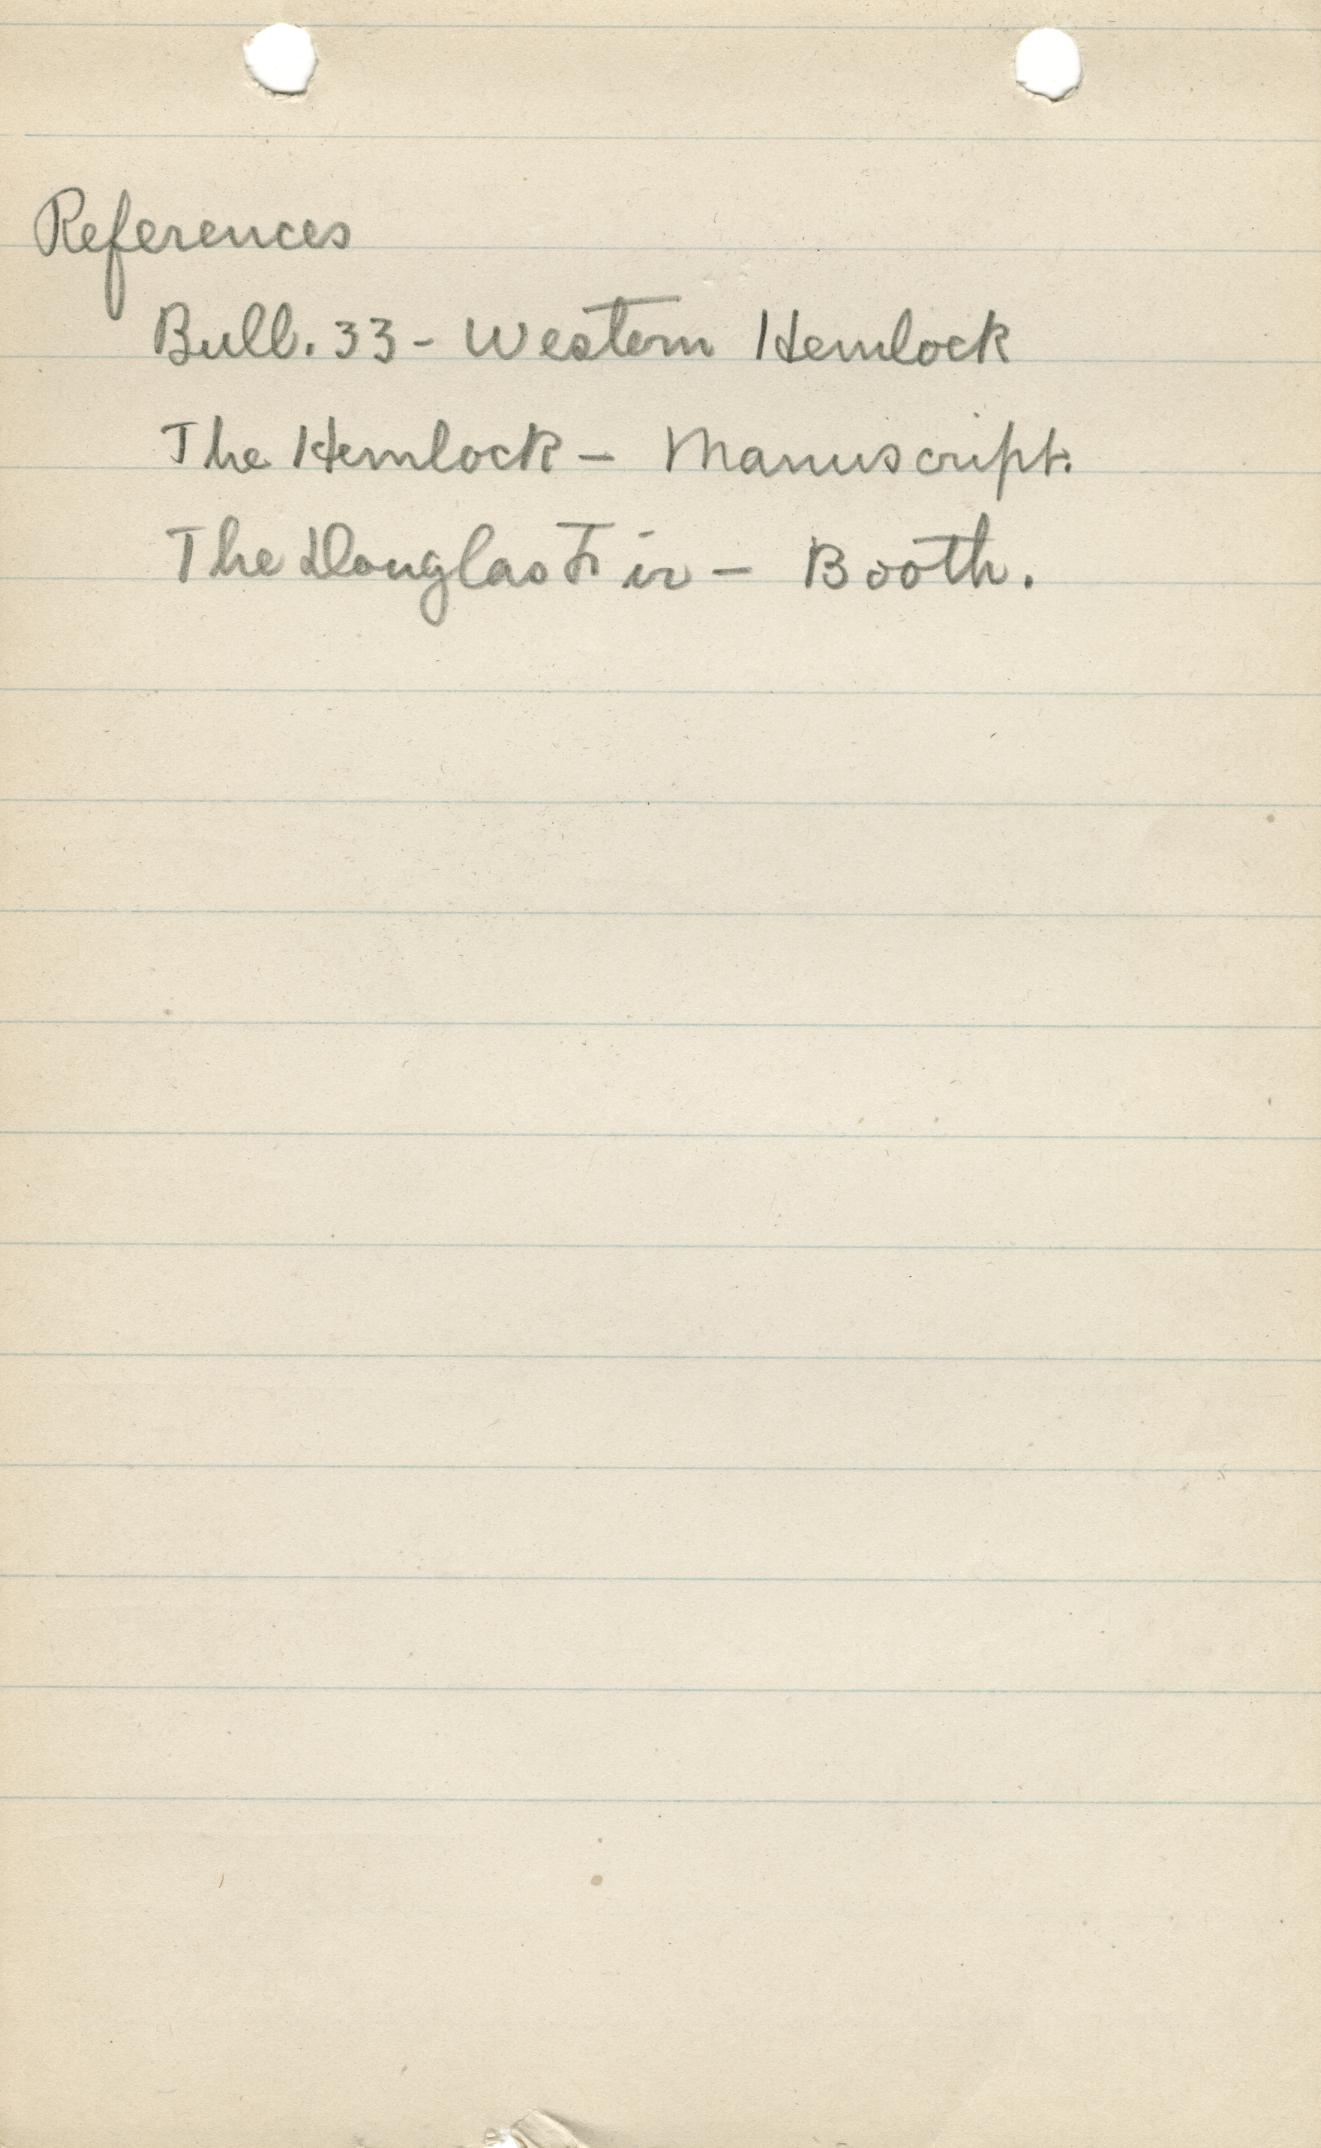 References
Bull. 33 - Western Hemlock
The Hemlock - Manuscript.
The Douglas Fir - Booth.